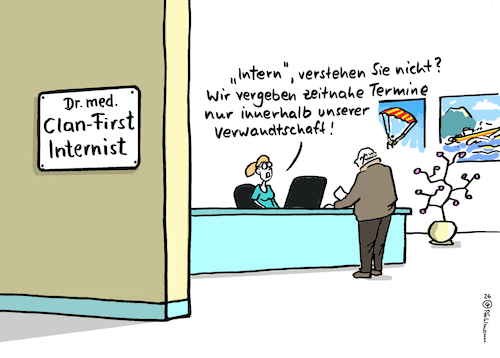 Dr. med.
Clan-First
Internist
„Intern“, verstehen Sie nicht?
Wir vergeben zeitnahe Termine
nur innerhalb unserer
Verwandtschaft!